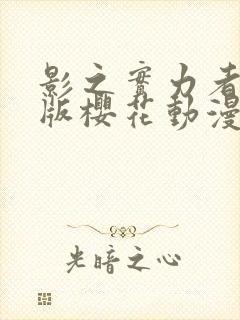 影之實力者
版櫻花動漫
光暗之心